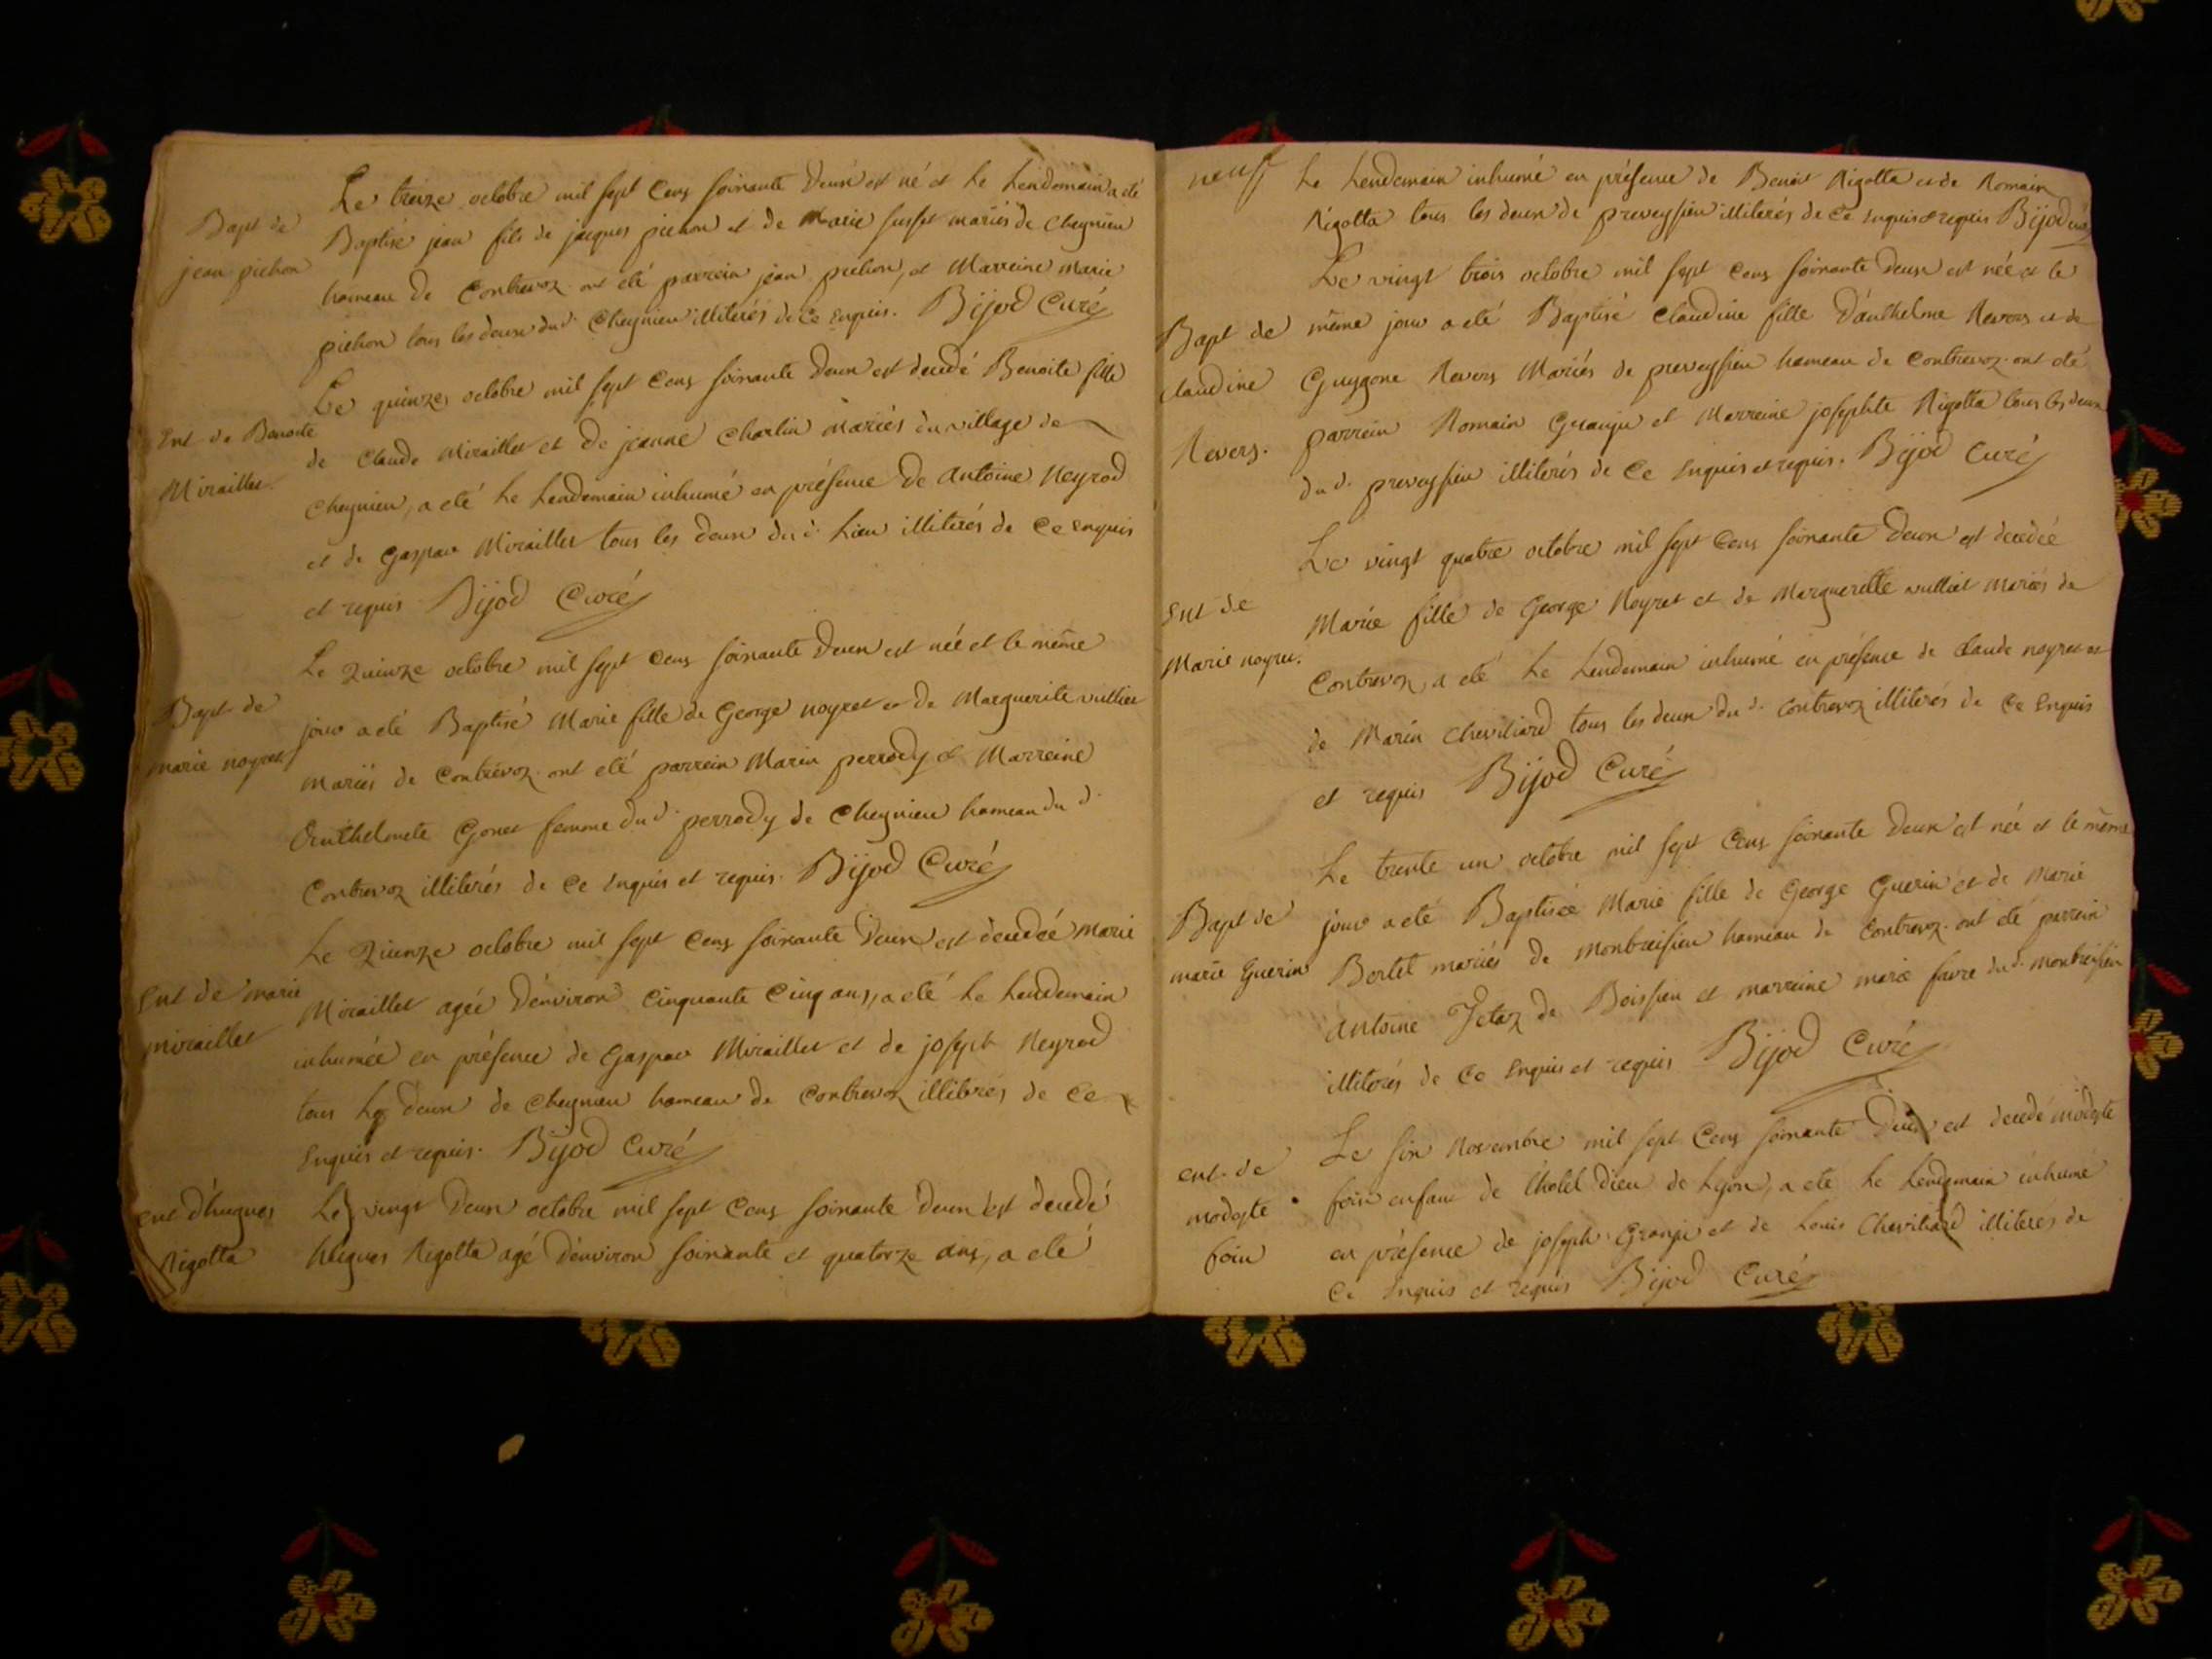 Bapt de
jean pichon
Le treize octobre mil sept Cens soixante Deux est né et Le Lendemain a eté
Baptisé jean fils de jacques pichon et de Marie susset mariés de Cheynieu
hameau De Contrevoz ont été parrein jean pichon, et Marreine Marie
pichon tous les deux dud. Cheynieu illiterés de Ce Enquis. Bijod Curé
Ent de Benoite
Miraillet.
Le quinze octobre mil sept Cens soixante Deux est decedé Benoite fille
de Claude Miraillet et De jeanne Charlin mariés du village de
Cheynieu, a eté Le Lendemain inhumé en présence De Antoine Neyrod
et de Gaspar Miraillet tous les deux du d. Lieu illiterés de Ce enquis
et requis Bijod Curé
Bapt de
marie noyret
Le Quinze octobre mil sept Cens soixante Deux est née et le même
jour a eté Baptisé Marie fille de George noyret et De Marguerite vulliet
mariés de Contrevoz ont eté parrein Marin perrody et Marreine
Anthelmete Gonet femme du d. perrody de Cheynieu hameau du d.
Contrevoz illiterés de Ce Enquis et requis. Bijod Curé
Ent de marie
miraillet
Le Quinze octobre mil sept Cens soixante Deux est decedée marie
Miraillet agée D'environ Cinquante Cinq ans, a eté Le Lendemain
inhumée en présence de Gaspar Miraillet et de joseph Neyrod
tous Les deux de Cheynieu hameau de Contrevoz illiterés de Ce
Enquis et requis. Bijod Curé
Ent d'hugues
Rigotta
Le vingt Deux octobre mil sept Cens soixante Deux est decedé
hugues Rigotta agé D'environ soixante et quatorze ans, a eté
neuf
Le Lendemain inhumé en présence de Benoit Rigotta et de Romain
Rigotta tous les deux de preveyssieu illiterés de Ce Enquis et requis Bijod curé
Bapt de
Claudine
Revers.
Le vingt trois octobre mil sept Cens soixante Deux est née et le
même jour a eté Baptisé Claudine fille D'anthelme Revers et de
Guygone Revers Mariés de preveyssieu hameau de Contrevoz ont eté
parrein Romain Granju et Marreine josephte Rigotta tous les deux
du d. preveyssieu illiterés de Ce Enquis et requis. Bijod Curé
Ent de
Marie noyret.
Le vingt quatre octobre mil sept Cens soixante Deux est decedée
Marie fille de George Noyret et de Margueritte vulliet mariés de
Contrevoz, a eté Le Lendemain inhumé en présence de Claude noyret et
de Marin Chevillard tous les deux du d. Contrevoz illiterés de Ce Enquis
et requis Bijod Curé
Bapt de
marie Guerin
Le trente un octobre mil sept Cens soixante Deux est née et le même
jour a eté Baptisée Marie fille de George Guerin et de Marie
Bertet mariés de Montbreisieu hameau de Contrevoz ont eté parrein
Antoine Jetaz de Boissieu et marreine marie favre du d. montbreisieu
illiterés de Ce Enquis et requis Bijod Curé
ent. de
modeste
foin
Le six Novembre mil sept Cens soixante Deux est decedé modeste
foin enfant de l'hotel Dieu de Lyon, a eté Le Lendemain inhumé
en présence de joseph Granju et de Louis Chevillard illiterés de
Ce Enquis et requis Bijod Curé